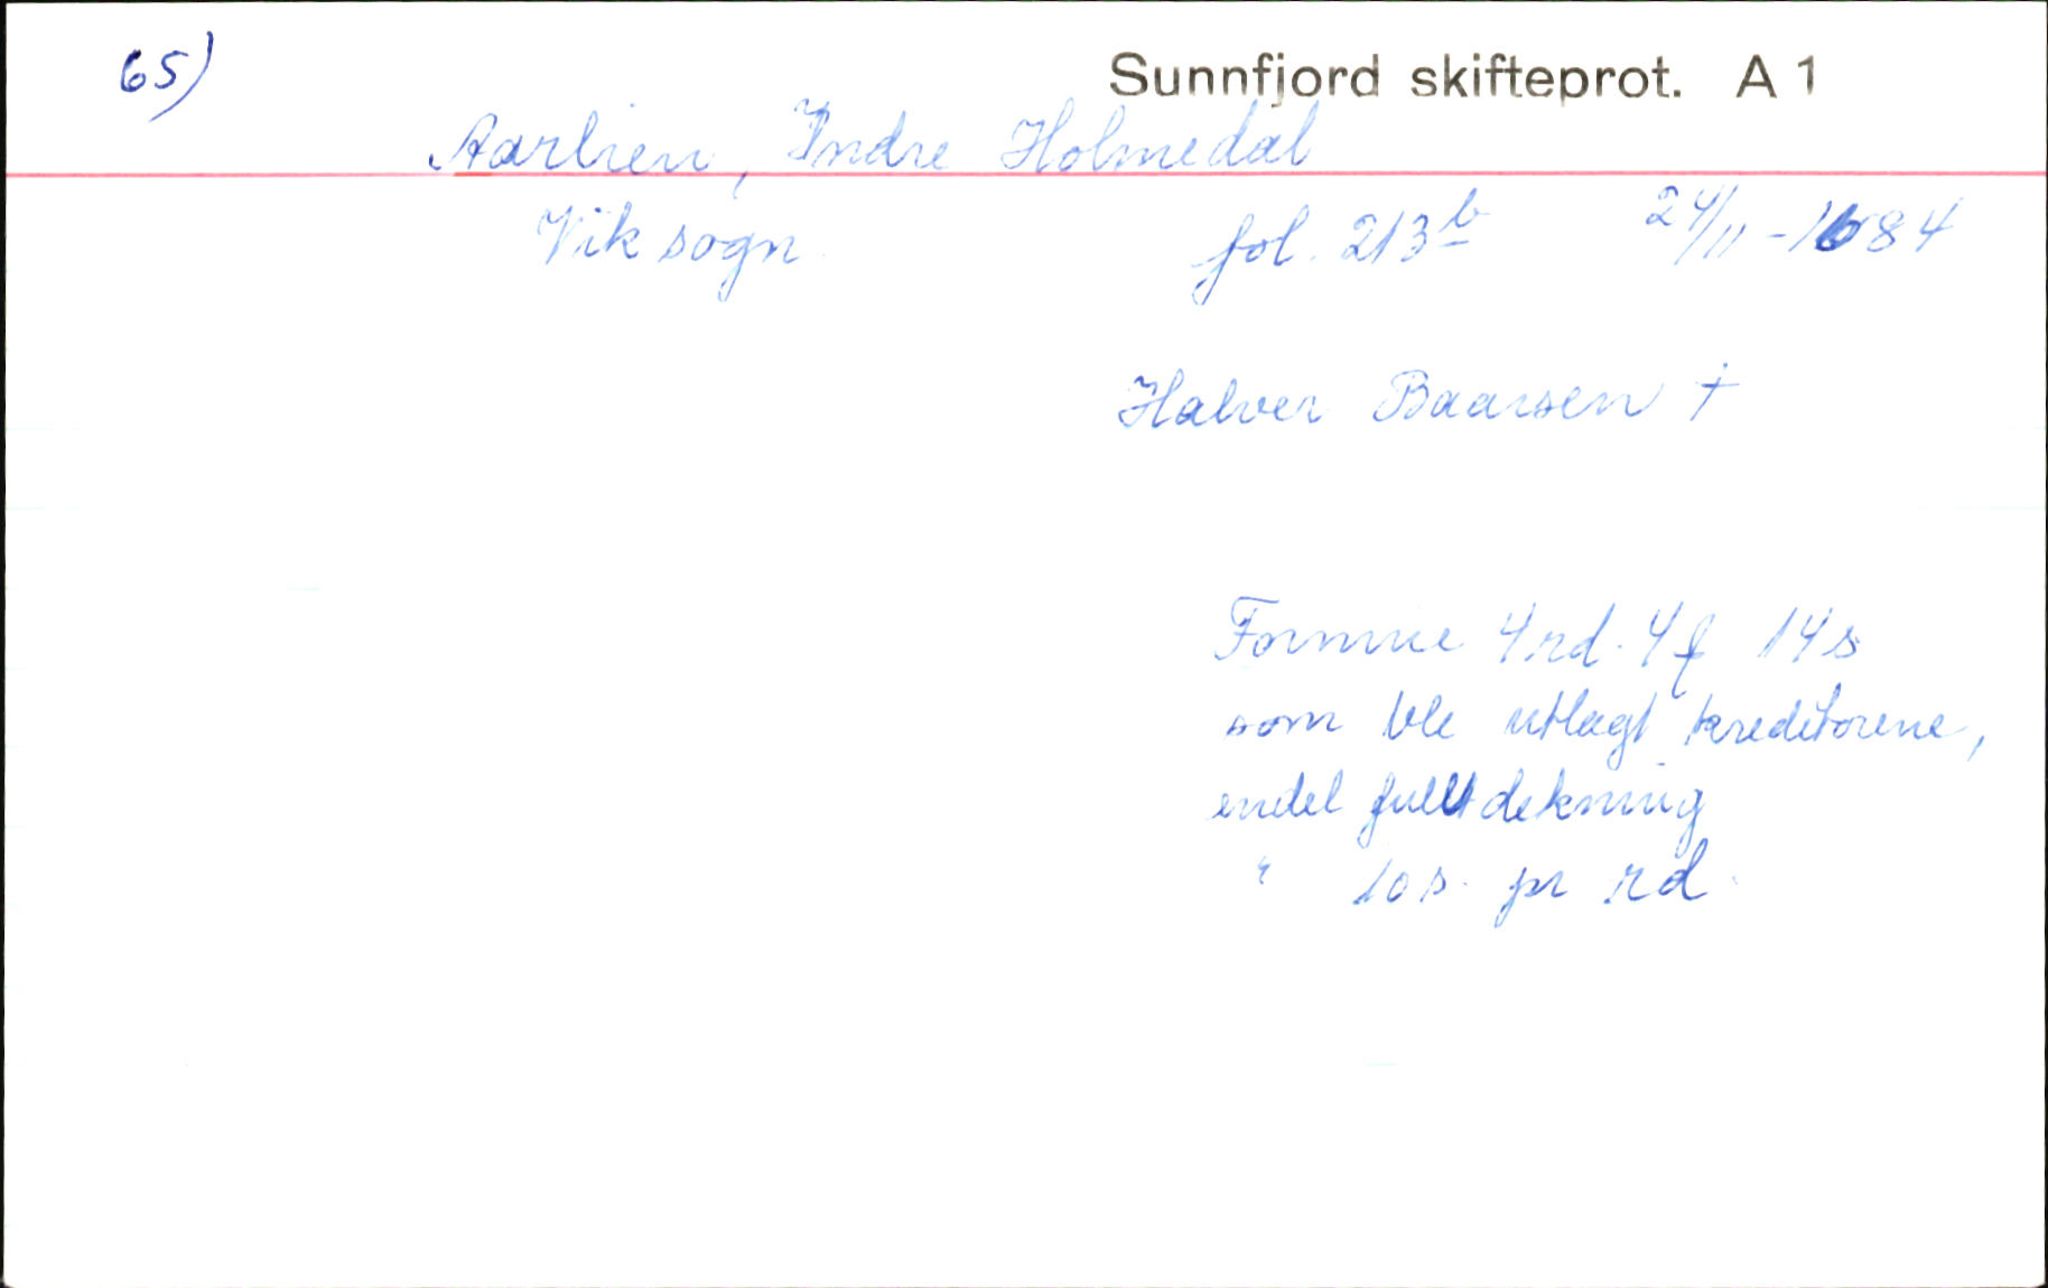 65)
Sunnfjord skifteprot. A 1
Aarlien, Indre Holmedal
Vik sogn. fol. 213 b 24/11 - 1684
Halver Baarsen †
Formue 4 rd. 4 f 14 s
som ble utlagt kreditorene,
endel full dekning
" 10 s. pr rd.